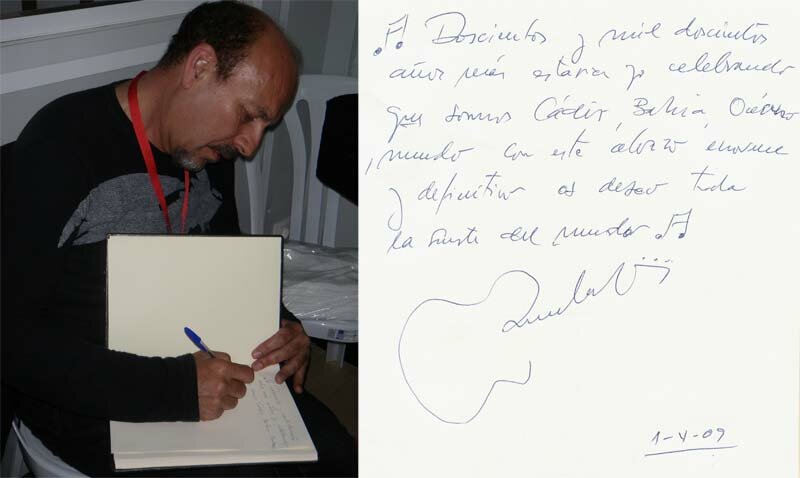 Doscientos y mil doscientos
años más estaría yo celebrando
que somos Cádiz, Bahía, Océano
, mundo con este abrazo enorme
y definitivo os deseo toda
la suerte del mundo
1-V-09